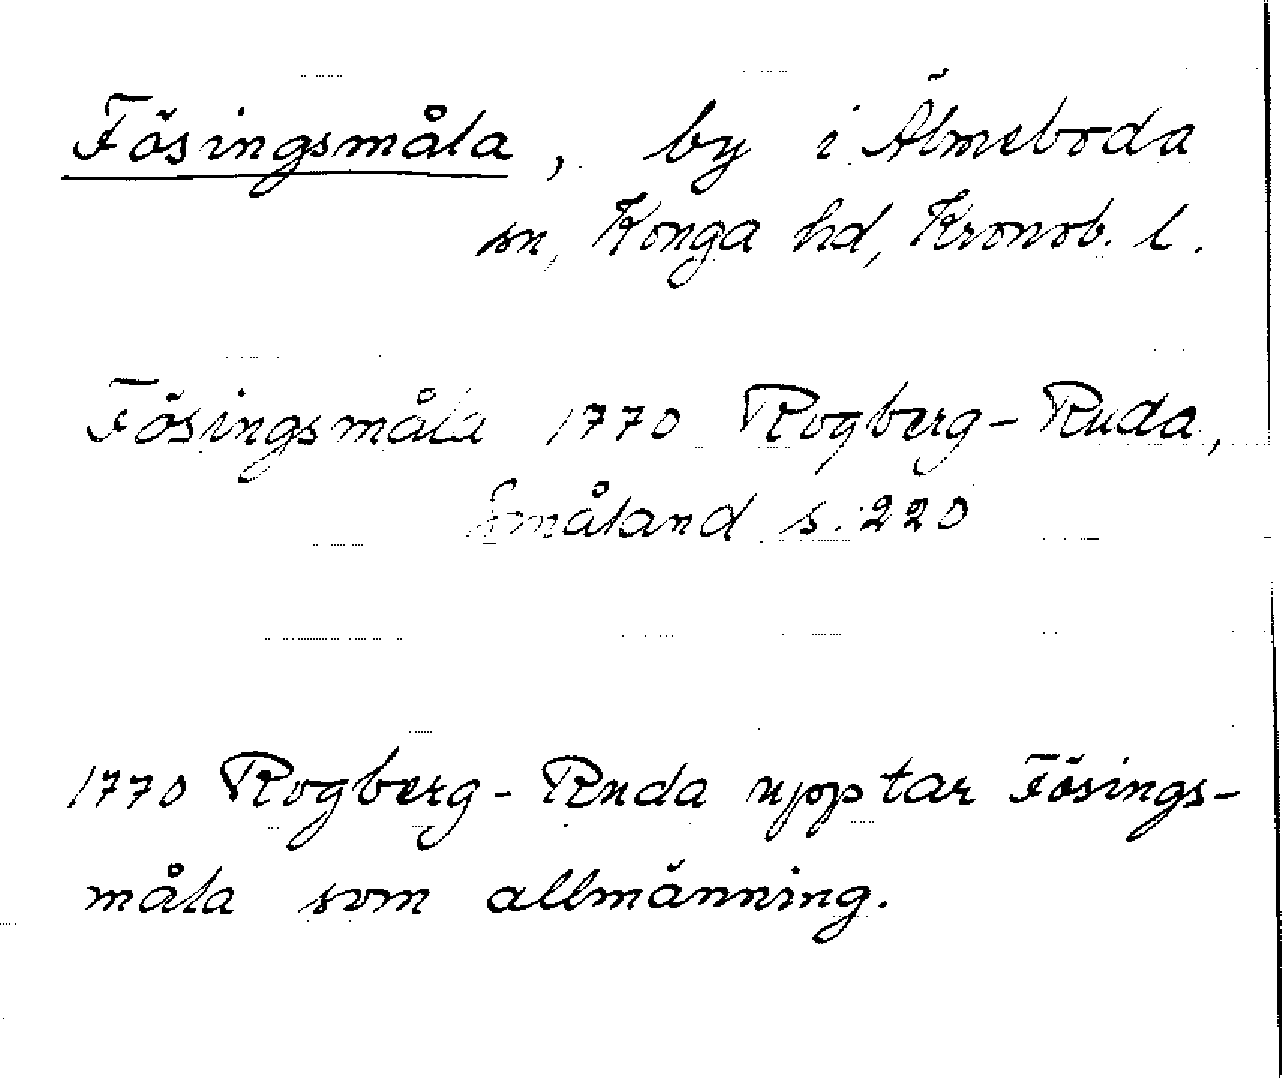 Fösingsmåla, by i Älmeboda
sn, Konga hd, Kronob. l.
Fösingsmåla 1770 Rogberg-Ruda,
Småland s. 220
1770 Rogberg-Ruda upptar Fösings-
måla som allmänning.